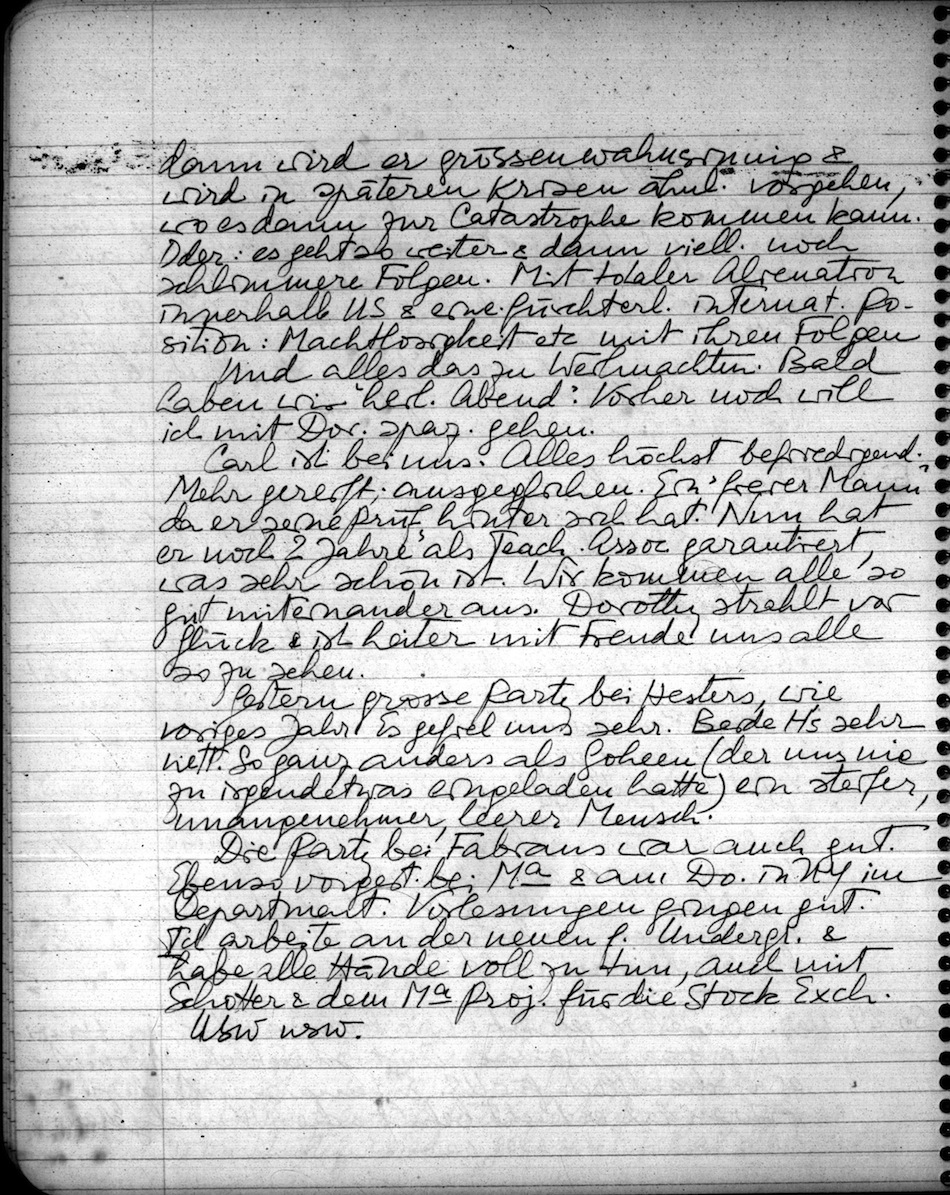 dann wird er grössenwahnsinnig &
wird in späteren Krisen ähnl. vorgehen,
wo es dann zur Catastrophe kommen kann.
Oder: es geht so weiter & dann viell. noch
schlimmere Folgen. Mit totaler Alienation
innerhalb US & eine fürchterl. internat. Po-
sition: Machtlosigkeit etc mit ihren Folgen
Und alles das zu Weihnachten. Bald
haben wir "heil. Abend". Vorher noch will
ich mit Dor. spaz. gehen.
Carl ist bei uns. Alles höchst befriedigend.
Mehr gereift, ausgeglichen. Ein "freier Mann"
da er seine Prüf. hinter sich hat. Nun hat
er noch 2 Jahre als Teach. Assoc garantiert,
was sehr schön ist. Wir kommen alle so
gut miteinander aus. Dorothy strahlt vor
Glück & ist heiter mit Freude uns alle
so zu sehen.
Gestern grosse Party bei Hesters, wie
voriges Jahr. Es gefiel uns sehr. Beide Hs sehr
nett. So ganz anders als Goheen (der uns nie
zu irgendetwas eingeladen hatte) ein steifer,
unangenehmer, leerer Mensch.
Die Party bei Fabians war auch gut.
Ebenso vorgest. bei Ma & am Do. in NY im
Department. Vorlesungen gingen gut.
Ich arbeite an der neuen f. Undergr. &
habe alle Hände voll zu tun, auch mit
Schotter & dem Ma Proj. für die Stock Exch.
Usw usw.